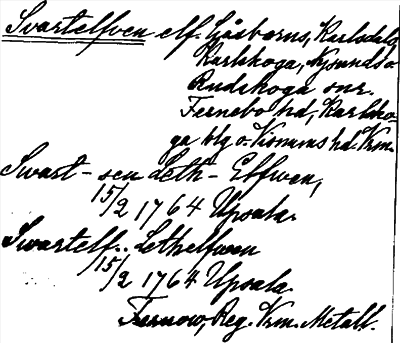 Svartelfven elf. Gåsborns, Karlsdals,
Karlskoga, Nysunds o
Rudskoga snr.
Fernebo hd, Karlsko-
ga blg o. Visnums hd. Vrm.
Swart- seu Leth- Elfwen,
15/2 1764 Upsala.
Swartelf.. Lethelfwen
15/2 1764 Upsala.
Fernow, Reg. Vrm. Metall.